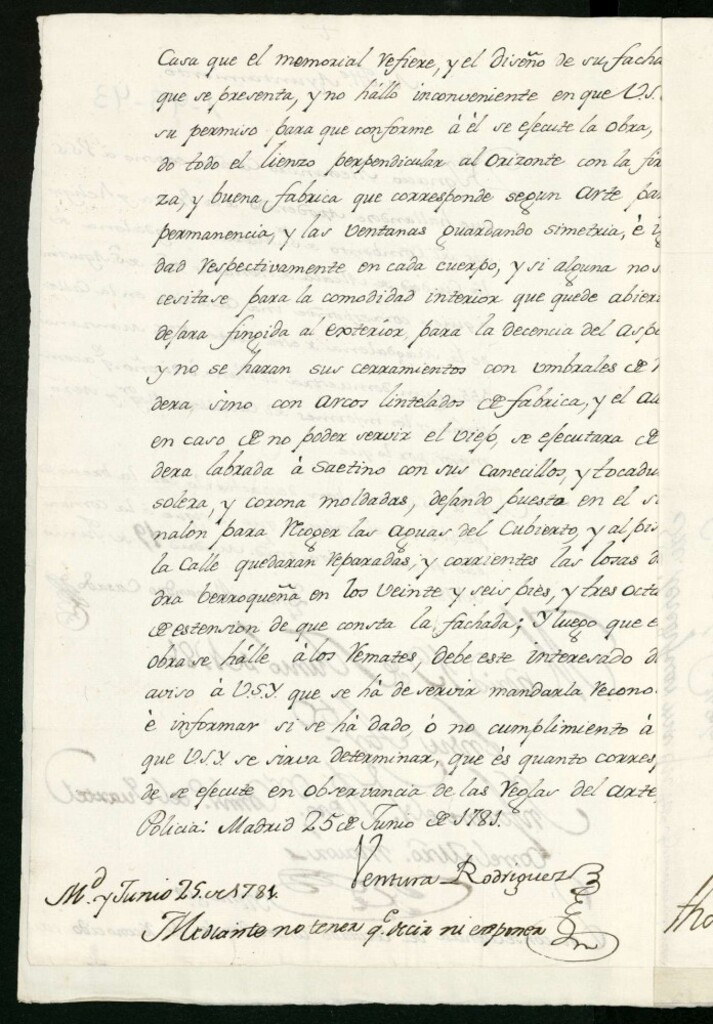 Casa que el memorial refiere, y el diseño de su facha
que se presenta, y no hállo inconveniente en que V.S.
su permiso para que conforme â èl se efecute la obra,
do todo el lienzo perpendicular al Orizonte con la fir
za, y buena fabrica que corresponde segun Arte pa
permanencia, y las Ventanas guardando simetria, è ig
dad respectivamente en cada cuerpo, y si alguna no s
cesitase para la comodidad interior que quede abier
defara fingida al exterior para la decencia del aspe
y no se haran sus cerramientos con Vmbrales de
dera, sino con Arcos lintelados de fabrica, y el
en caso de no poder servir el viejo, se efecutara de
dera labrada à Saetino con sus Canecillos, y tocadu
solera, y corona moldadas, defando puesta en el
nalon para recoger las Aguas del Cubierto, y al pis
la Calle quedarán reparadas, y corrientes las losas d
dra berroqueña en los veinte y seis pies, y tres octa
de estension de que consta la fachada; Y luego que e
obra se hálle à los remates, debe este interesado d
aviso à V.S.Y. que se há de servir mandarla recono
è informar si se há dado, ò no cumplimiento à
que V.S.Y. se sirva determinar, que ès quanto corres
de se efecute en Observancia de las reglas del arte
Policia: Madrid 25 de Junio de 1781.
Ventura Rodriguez
M.d y Junio 25. de 1781.
Mediante no tener q.e decir ni exponer